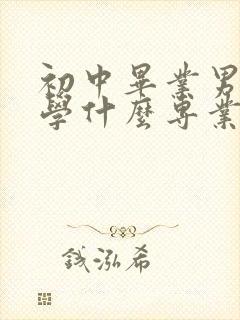 初中畢業男
學什麼專業
錢泓希